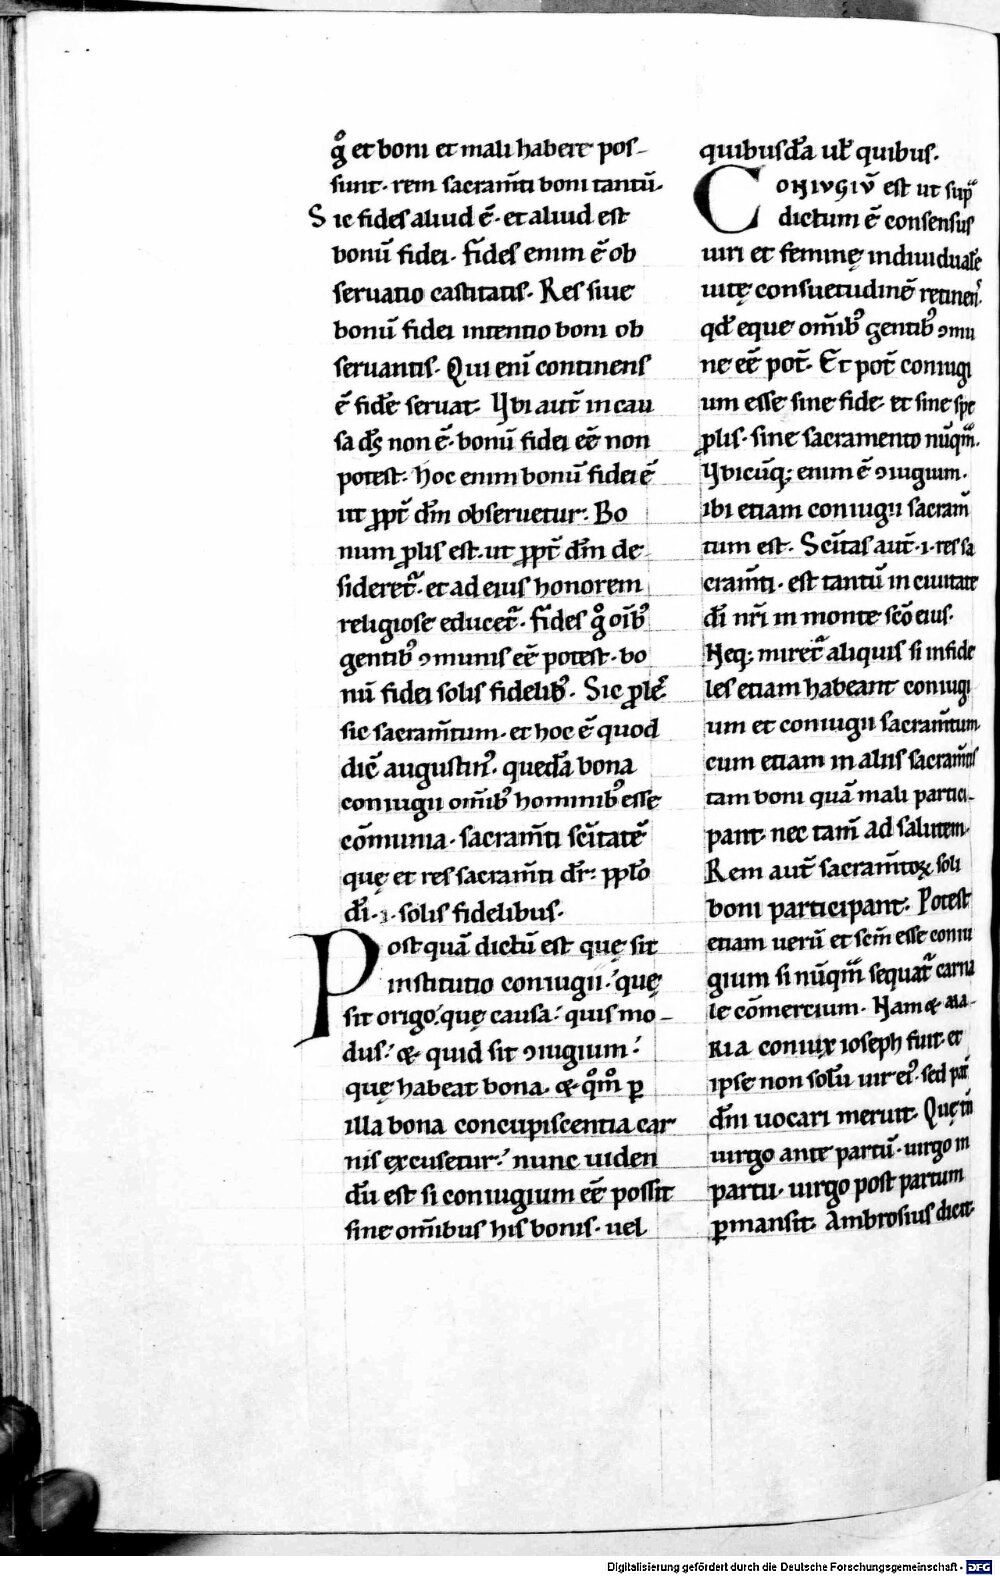 gͦ et boni et mali habere pos-
sunt. rem sacram̄ti boni tantū.
Sic fides aliud ē. et aliud est
bonū fidei. fides enim ē ob
seruatio castitatis. Res siue
bonū fidei intentio boni ob
seruantis. Qui eni continens
ē fidē seruat. Vbi aut̄ in cau
sa dꝰs non ē. bonū fidei eē non
potest. hoc enim bonū fidei ē
ut ꝓpt̄ dm̄ obseruetur. Bo
num ꝓlis est. ut ꝓpt̄ dm̄ de-
sideret̄. et ad eius honorem
religiose educet̄. fides gͦ oīb;
gentib; ꝯmunis eē potest. bo
nū fidei solis fidelib;. Sic ꝓles
sic sacram̄tum. et hoc ē quod
dic̄ augustin᷒. quedā bona
coniugii om̄ib; hominib; esse
cōmunia. sacram̄ti sc̄itatē
quę et res sacram̄ti dr̄. ppl̄o
dī. .i. solis fidelibus.
Postquā dictū est quę sit
institutio coniugii. quę
sit origo. quę causa. quis mo-
dus. & quid sit ꝯiugium.
quę habeat bona. & qͦm̊ ꝑ
illa bona concupiscentia car
nis excusetur. nunc uiden
dū est si coniugium eē possit
sine om̄ibus his bonis. uel
quibusdā ul̄ quibus.
CONIVGIV̄ est ut sup̄
dictum ē consensus
uiri et feminę indiuiduālē
uitę consuetudinē retinen᷒.
qd̄ eque om̄ib; gentib; ꝯmu
ne eē pot̄. Et pot̄ coniugi
um esse sine fide. et sine spe
ꝓlis. sine sacramento nūqm̄.
Vbicūq; enim ē ꝯiugium.
ibi etiam coniugii sacram̄
tum est. Sc̄itas aut̄ .i. res sa
cram̄ti. est tantū in ciuitate
dī nr̄i in monte sc̄o eius.
Neq; miret̄ aliquis si infide
les etiam habeant coniugi
um et coniugii sacram̄tum
cum etiam in aliis sacram̄tis
tam boni quā mali partici-
pant. nec tam̄ ad salutem.
Rem aut̄ sacram̄toꝝ soli
boni participant. Potest
etiam uerū et scm̄ esse coniu
gium si nūqm̄ sequat̄ carna
le cōmercium. Nam & MA-
RIA coniux ioseph fuit. et
ipse non solū uir ei᷒. sed pat̄
dn̄i uocari meruit. Quę tn̄
uirgo ante partū. uirgo in
partu. uirgo post partum
ꝑmansit. Ambrosius dicit.
Digitalisierung gefördert durch die Deutsche Forschungsgemeinschaft - DFG